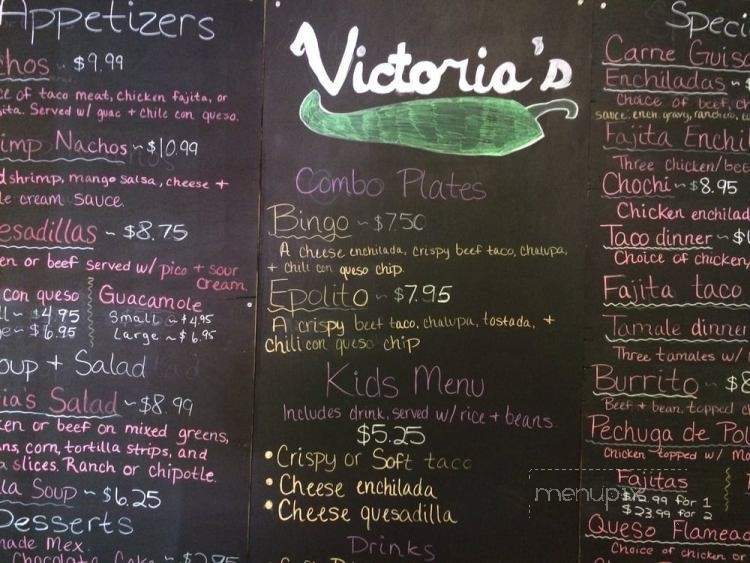 Appetizers
chos ~ $9.99
ce of taco meat, chicken fajita, or
jita. Served w/ guac + chile con queso.
imp Nachos ~ $10.99
d shrimp, mango salsa, cheese +
le cream sauce.
esadillas ~ $8.75
en or beef served w/ pico + sour
cream.
con queso
ll ~ $4.95
ge ~ $6.95
Guacamole
Small ~ $4.95
Large ~ $6.95
oup + Salad
ia's Salad ~ $8.99
ken or beef on mixed greens,
ns, corn, tortilla strips, and
a slices. Ranch or chipotle.
lla Soup ~ $6.25
Desserts
made Mex.
Chocolate Cake ~ $2.95
Victoria's
Combo Plates
Bingo ~ $7.50
A cheese enchilada, crispy beef taco, chalupa,
+ chili con queso chip.
Epolito ~ $7.95
A crispy beef taco, chalupa, tostada, +
chili con queso chip
Kids Menu
Includes drink, served w/ rice + beans.
$5.25
• Crispy or Soft taco
• Cheese enchilada
• Cheese quesadilla
Drinks
Speci
Carne Guisa
Enchiladas ~
Choice of beef, ch
sauce: ench. gravy, ranchero,
Fajita Enchil
Three chicken/bee
Chochi ~ $8.95
Chicken enchilad
Taco dinner ~ $
Choice of chicken,
Fajita taco
Tamale dinner
Three tamales w/
Burrito ~ $8
Beef + bean, topped
Pechuga de Pol
Chicken topped w/ Mo
Fajitas
$12.99 for 1
$23.99 for 2
Queso Flamea
Choice of chicken or
menupix